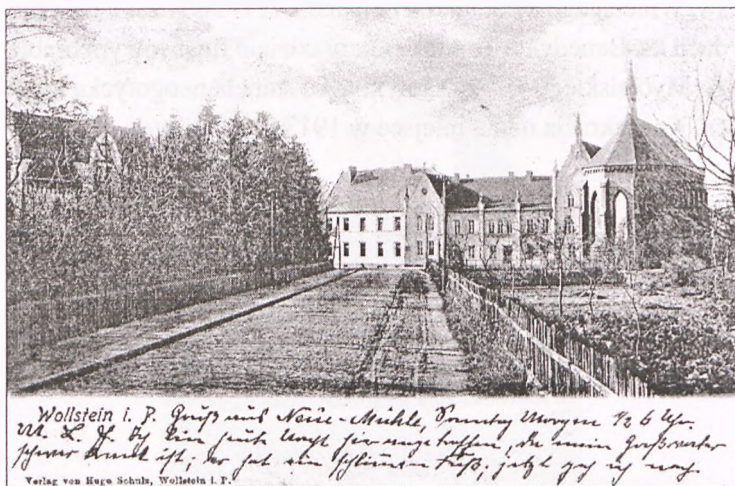 miejsce w 191
Wollstein i. P. Gruß aus Neue-Mühle, Sonntag Morgen ½ 6 Uhr.
M. L. Ich bin heute Nacht hier eingetroffen, da mein Großvater
schwer krank ist; er hat ein schlimmen Fuß; jetzt geh ich nach
Verlag von Hugo Schulz, Wollstein i. P.